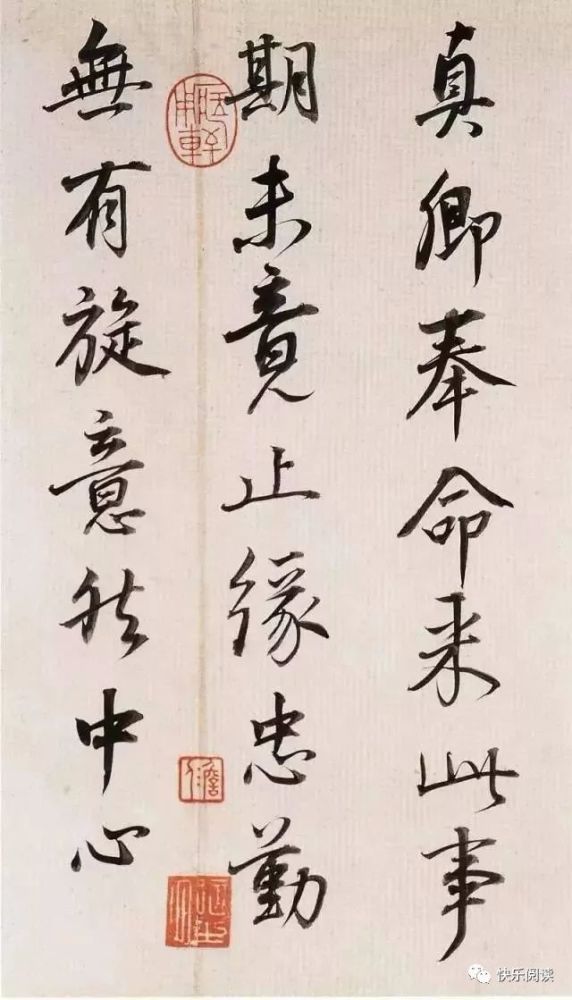 真卿奉命来此事
期未竟止缘忠勤
無有旋意然中心
快乐阅读